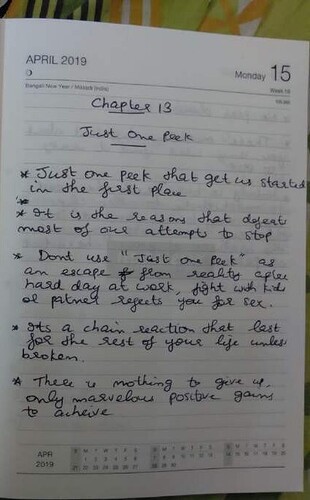 APRIL 2019
Monday 15
Bengali New Year / Vaisakhi (India)
Week 16
Chapter 13
Just One Peek
* Just one peek that get us started
in the first place
* It is the reasons that defeat
most of our attempts to stop
* Dont use "Just one Peek" as
an escape from reality after
hard day at work, fight with kids
or patner rejects you for sex.
* Its a chain reaction that last
for the rest of your life unless
broken.
* There is nothing to give up,
only marvelous positive gains
to acheive
APR
2019
S M T W T F S
S M T W T F S
S M T W T F S